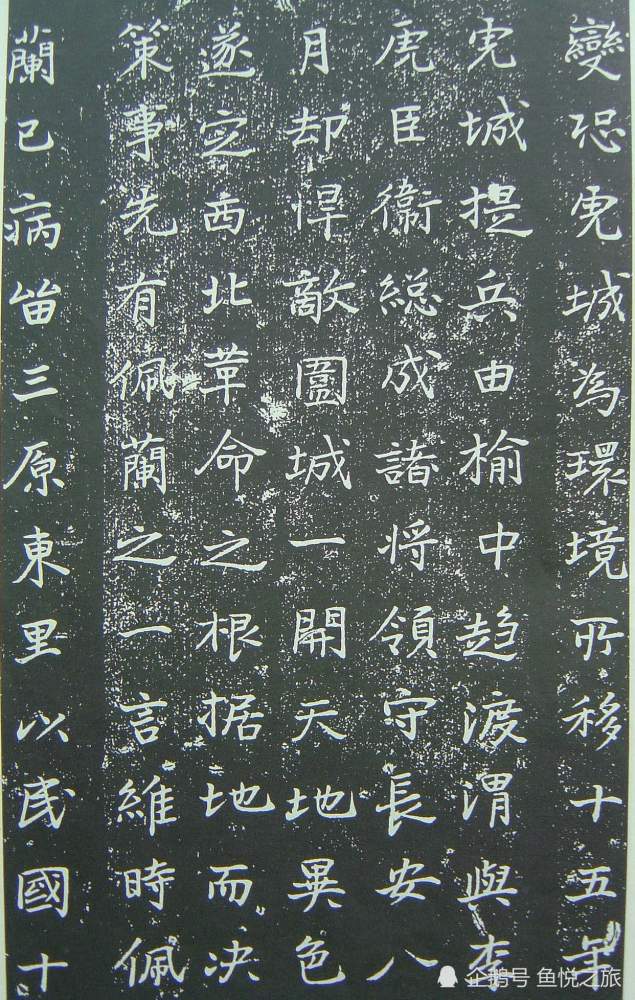 變恐虎城為環境所移十五年
虎城提兵由榆中趋渡渭與李
虎臣衛総成諸将領守長安八
月却悍敵圍城一開天地異色
遂定西北革命之根据地而决
策事先有佩蘭之一言維時佩
蘭已病畄三原東里以民國十
企鹅号 鱼悦之旅